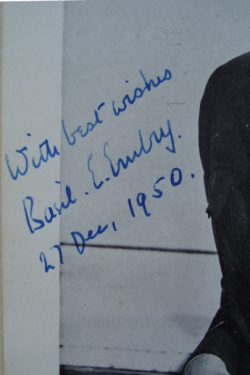 With best wishes
Basil. E. Embry.
27 Dec, 1950.